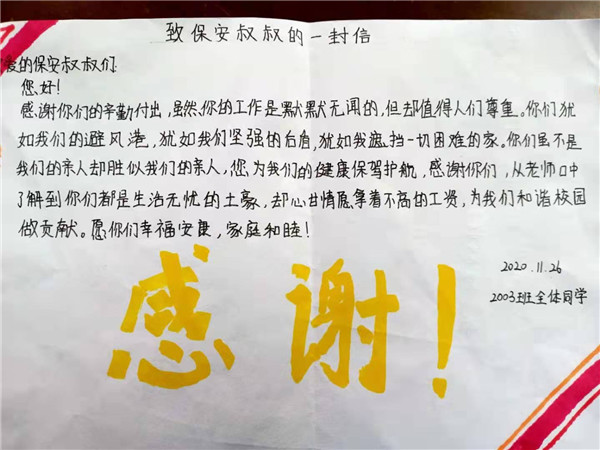 致保安叔叔的一封信
爱的保安叔叔们:
您好!
感谢你们的辛勤付出,虽然你的工作是默默无闻的,但却值得人们尊重。你们犹
如我们的避风港,犹如我们坚强的后盾,犹如我遮挡一切困难的家。你们虽不是
我们的亲人却胜似我们的亲人,您为我们的健康保驾护航,感谢你们,从老师口中
了解到你们都是生活无忧的土豪,却心甘情愿拿着不高的工资,为我们和谐校园
做贡献。愿你们幸福安康,家庭和睦!
2020.11.26
2003班全体同学
感谢!